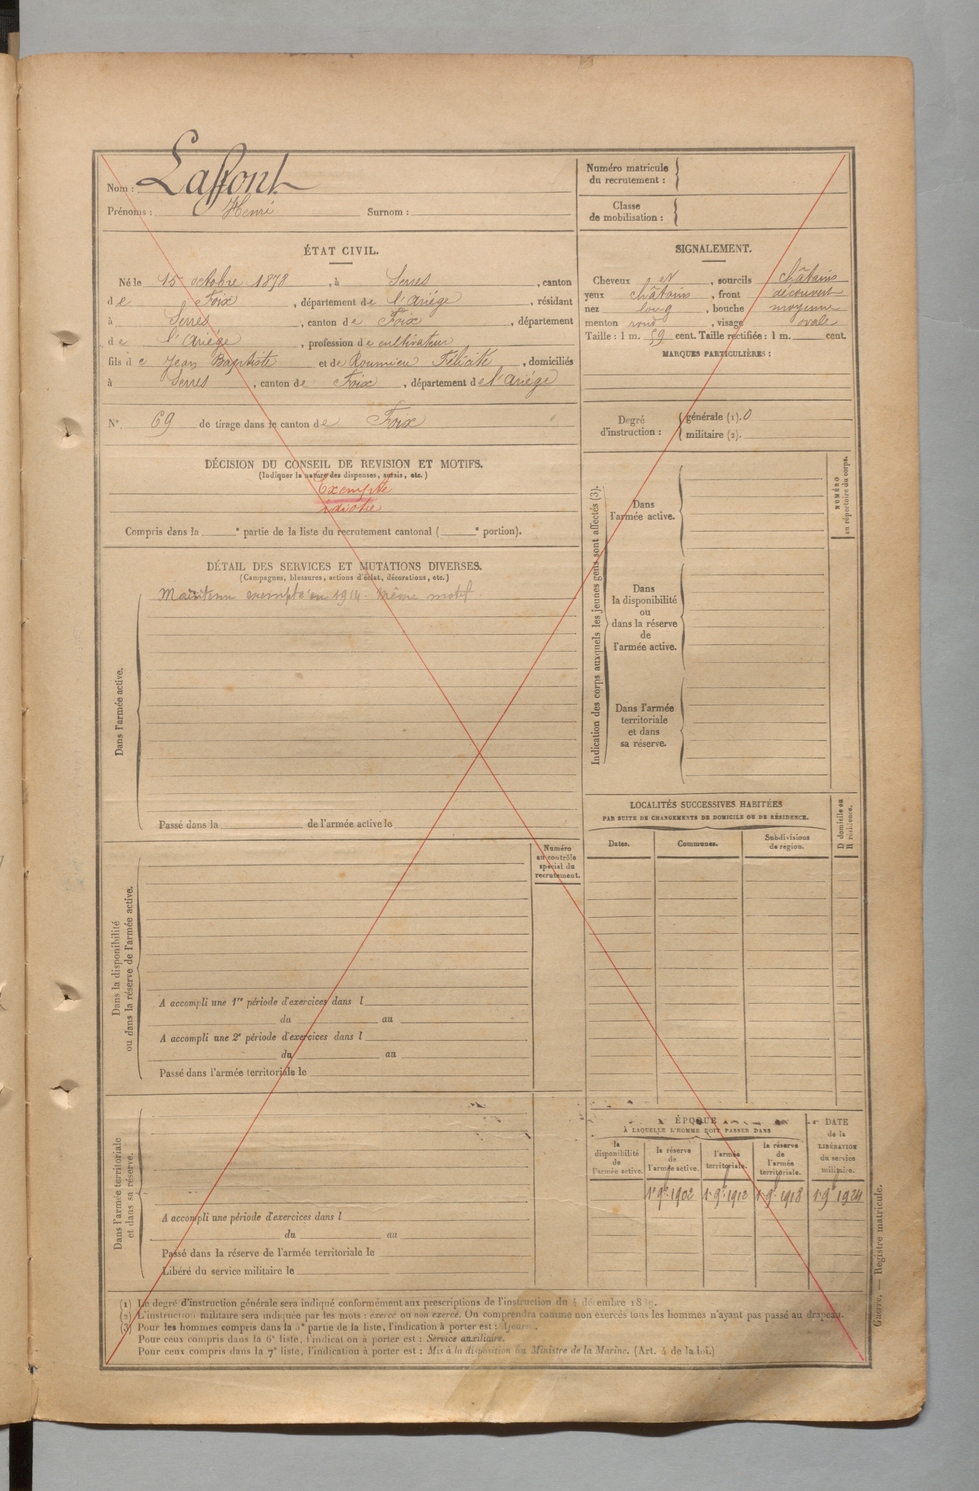 Nom : Laffont
Prénoms : Henri Surnom :
ÉTAT CIVIL.
Né le 15 octobre 1878, à Serres, canton
de Foix, département de l'Ariége, résidant
à Serres, canton de Foix, département
de l'Ariége, profession de cultivateur
fils de Jean Baptiste et de Roumieu Félicité, domiciliés
à Serres, canton de Foix, département de l'Ariége
N°. 69 de tirage dans le canton de Foix
DÉCISION DU CONSEIL DE REVISION ET MOTIFS.
(Indiquer la nature des dispenses, sursis, etc.)
Exempté
idiotie
Compris dans la ____e partie de la liste du recrutement cantonal (____e portion).
DÉTAIL DES SERVICES ET MUTATIONS DIVERSES.
(Campagnes, blessures, actions d'éclat, décorations, etc.)
Maintenu exempté en 1914 même motif.
Dans l'armée active.
Passé dans la de l'armée active le
Numéro
au contrôle
spécial du
recrutement.
Dans la disponibilité
ou dans la réserve de l'armée active.
A accompli une 1re période d'exercices dans l
du au
A accompli une 2e période d'exercices dans l
du au
Passé dans l'armée territoriale le
Dans l'armée territoriale
et dans sa réserve.
A accompli une période d'exercices dans l
du au
Passé dans la réserve de l'armée territoriale le
Libéré du service militaire le
Numéro matricule
du recrutement :
Classe
de mobilisation :
SIGNALEMENT.
Cheveux et, sourcils châtains
yeux châtains, front découvert
nez long, bouche moyenne
menton rond, visage ovale
Taille : 1 m. 59 cent. Taille rectifiée : 1 m. cent.
MARQUES PARTICULIÈRES :
Degré
d'instruction :
générale (1). 0
militaire (2).
Indication des corps auxquels les jeunes gens sont affectés (3).
Dans
l'armée active.
Dans
la disponibilité
ou
dans la réserve
de
l'armée active.
Dans l'armée
territoriale
et dans
sa réserve.
NUMÉRO
au répertoire du corps.
LOCALITÉS SUCCESSIVES HABITÉES
PAR SUITE DE CHANGEMENTS DE DOMICILE OU DE RÉSIDENCE.
Dates. Communes. Subdivisions
de région.
D domicile ou
R résidence.
ÉPOQUE
À LAQUELLE L'HOMME DOIT PASSER DANS
la
disponibilité
de
l'armée active.
la réserve
de
l'armée active.
l'armée
territoriale.
la réserve
de
l'armée
territoriale.
DATE
de la
LIBÉRATION
du service
militaire.
1er 9bre 1902 1er 9bre 1912 1er 9bre 1918 1er 9bre 1924
(1) Le degré d'instruction générale sera indiqué conformément aux prescriptions de l'instruction du 4 décembre
(2) L'instruction militaire sera indiquée par les mots : exercé ou non exercé. On comprendra comme non exercés tous les hommes n'ayant pas passé au drapeau.
(3) Pour les hommes compris dans la partie de la liste, l'indication à porter est :
Pour ceux compris dans la 6e liste, l'indication à porter est : Service auxiliaire.
Pour ceux compris dans la 7e liste, l'indication à porter est : Mis à la disposition du Ministre de la Marine. (Art. 4 de la loi.)
Guerre. — Registre matricule.